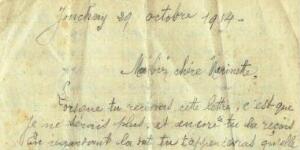 Jonchery 29 octobre 1914.
Ma bien chère Marinette,
Lorsque tu recevras cette lettre, c'est que
je ne serais plus, et encore tu la reçois
tu l'apprendras qu'elle